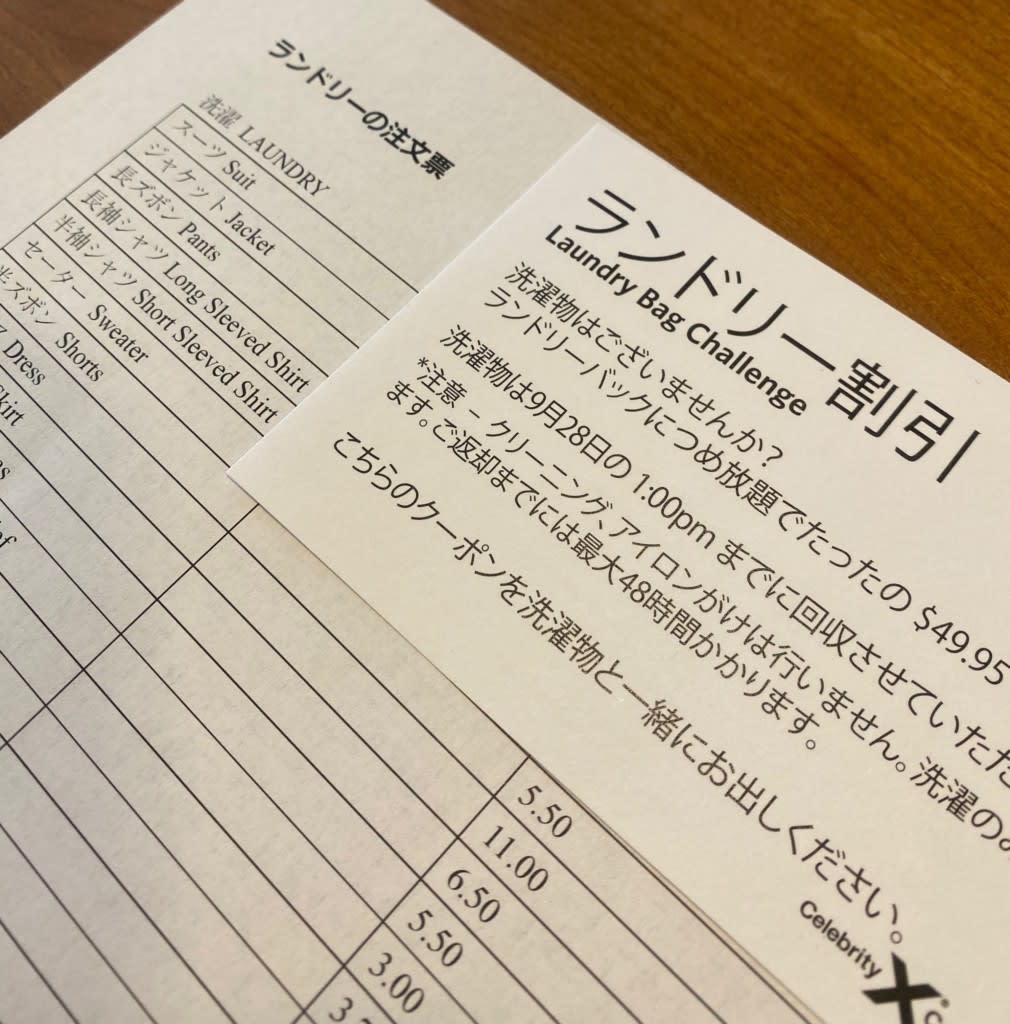 ランドリーの注文票
洗濯 LAUNDRY
スーツ Suit
ジャケット Jacket
長ズボン Pants
長袖シャツ Long Sleeved Shirt
半袖シャツ Short Sleeved Shirt
セーター Sweater
半ズボン Shorts
Dress
5.50
11.00
6.50
5.50
3.00
ランドリー割引
Laundry Bag Challenge
洗濯物はございませんか？
ランドリーバックにつめ放題でたったの $49.95
洗濯物は9月28日の 1:00pm までに回収させていただ
*注意 – クリーニング、アイロンがけは行いません。洗濯のみ
ます。ご返却までには最大48時間かかります。
こちらのクーポンを洗濯物と一緒にお出しください。
Celebrity X